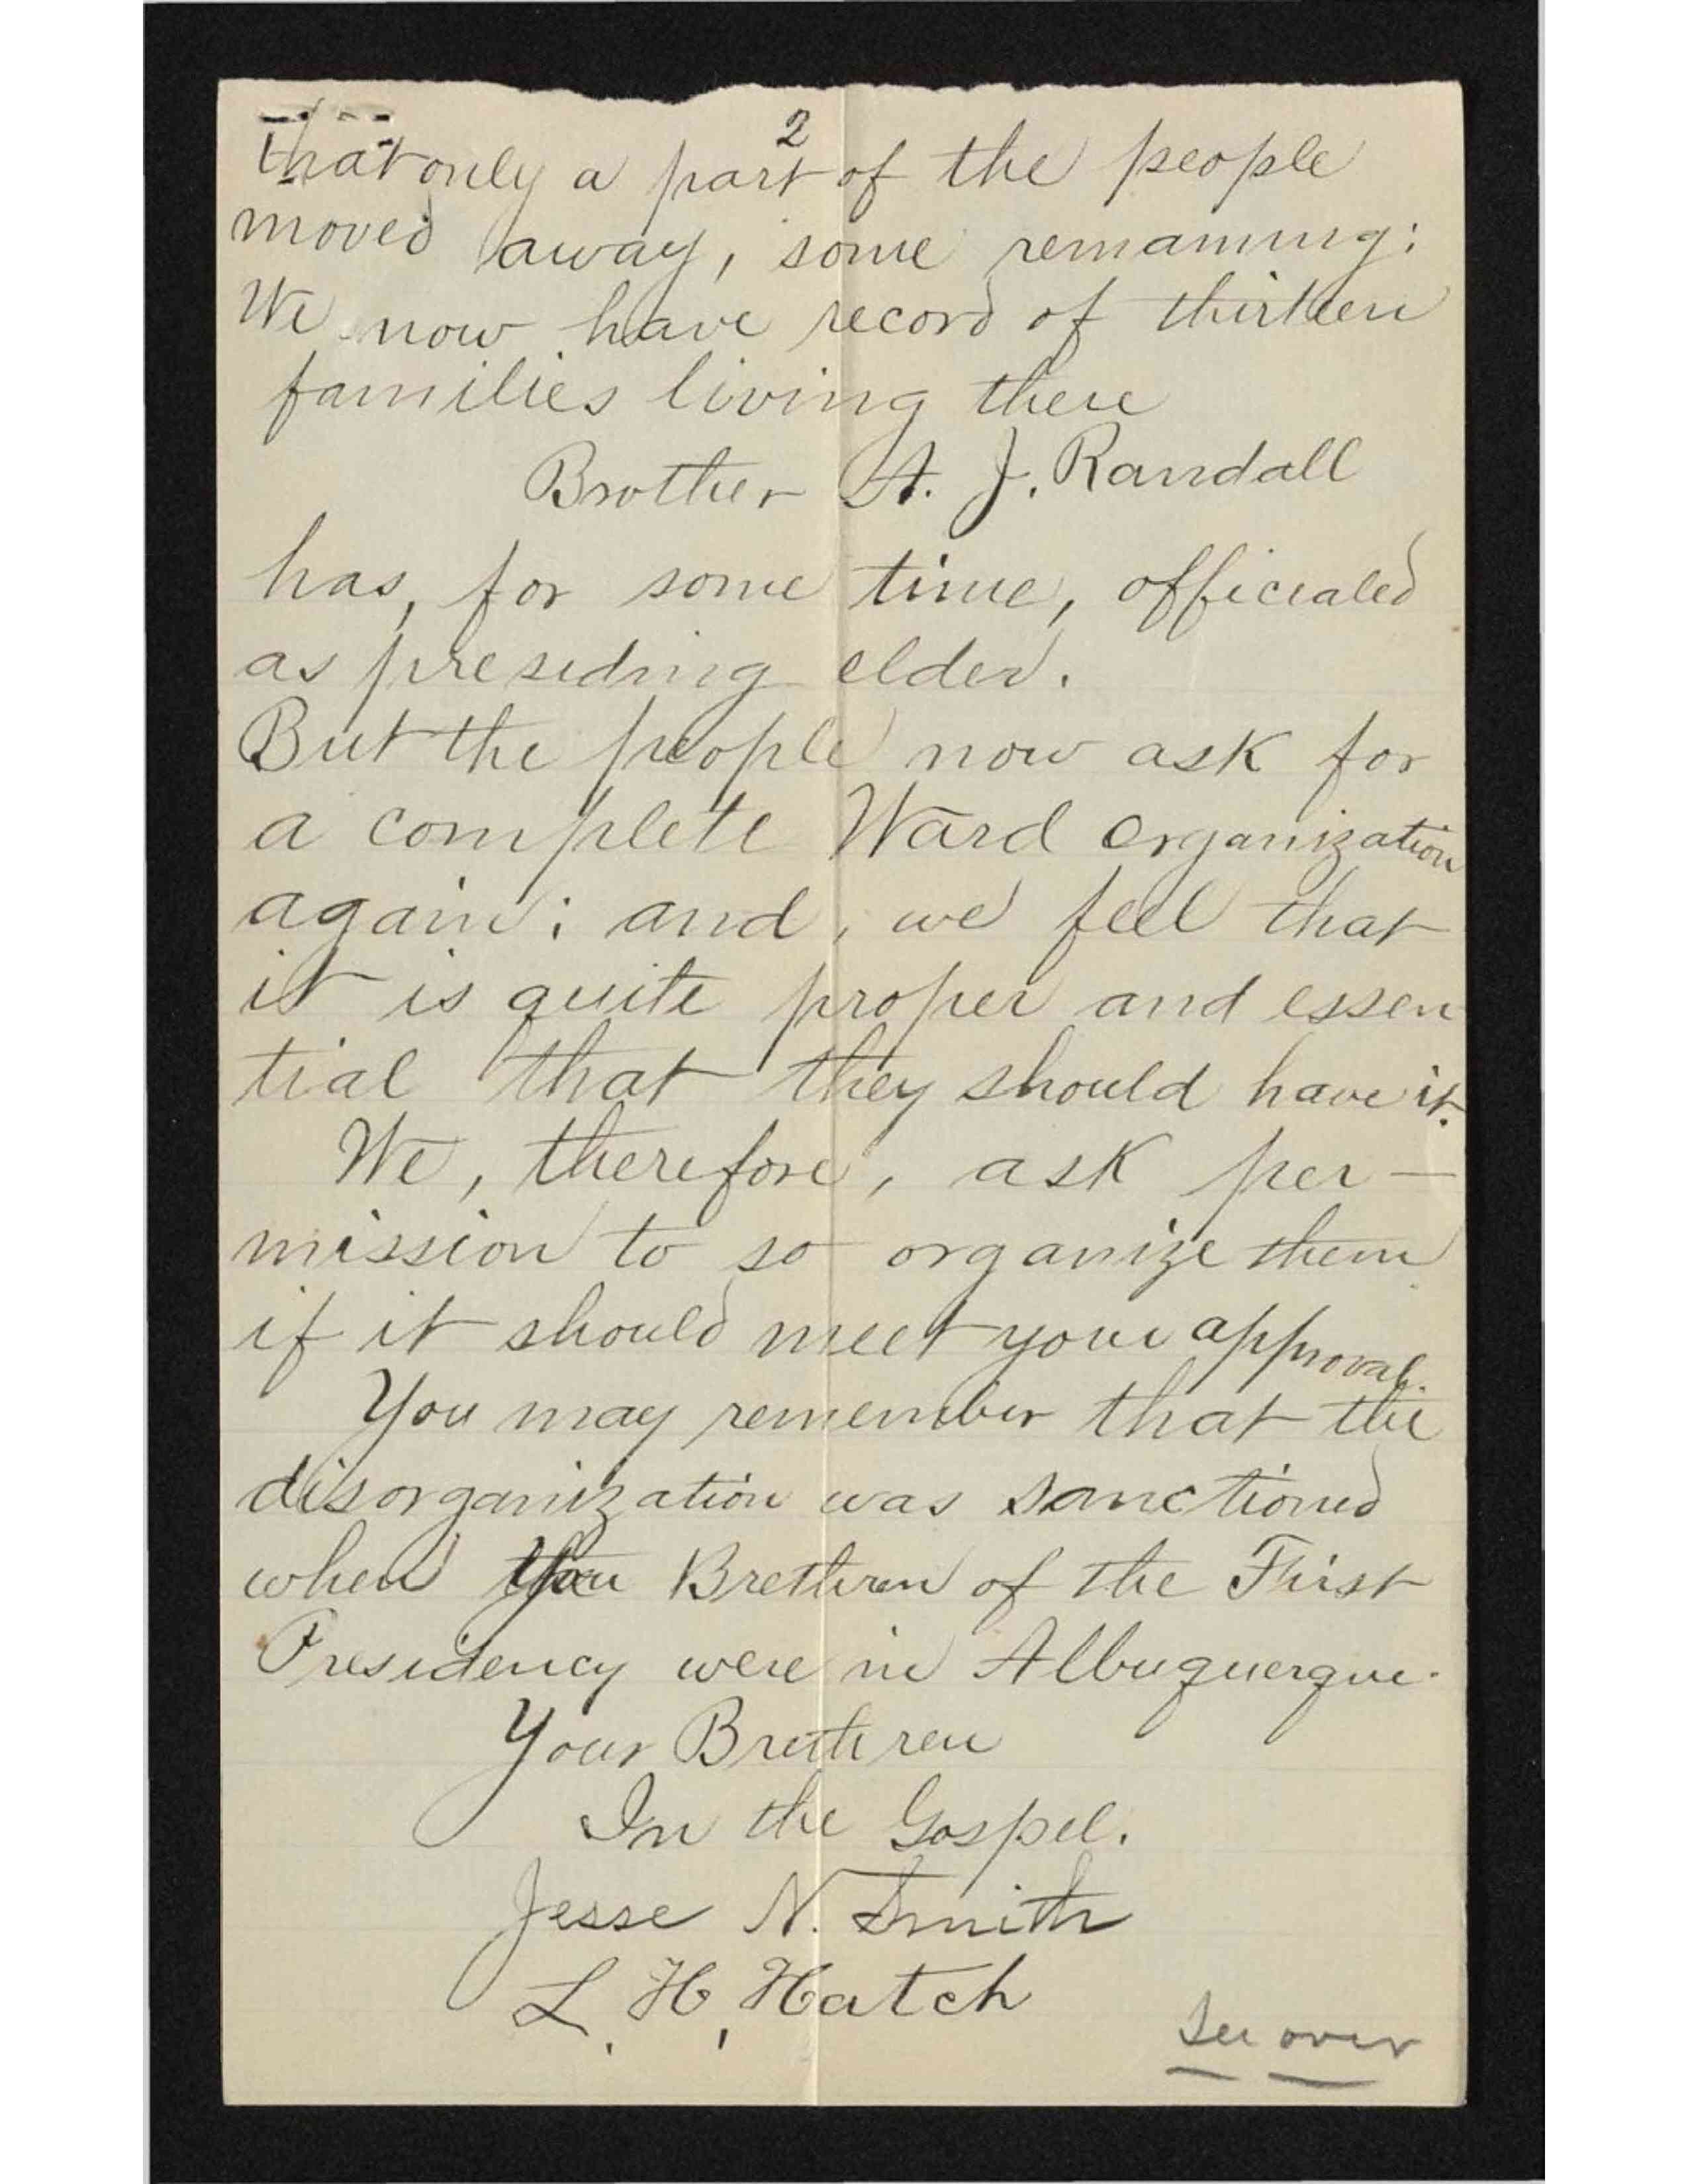 2
that only a part of the people
moved away, some remaining:
We now have record of thirteen
families living there
Brother A. J. Randall
has, for some time, officiated
as presiding elder.
But the people now ask for
a complete Ward organization
again; and, we feel that
it is quite proper and essen
tial that they should have it.
We, therefore, ask per-
mission to so organize them
if it should meet your approval.
You may remember that the
disorganization was sanctioned
when you Brethren of the First
Presidency were in Albuquerque.
Your Brethren
In the Gospel.
Jesse N. Smith
L. H. Hatch
See over